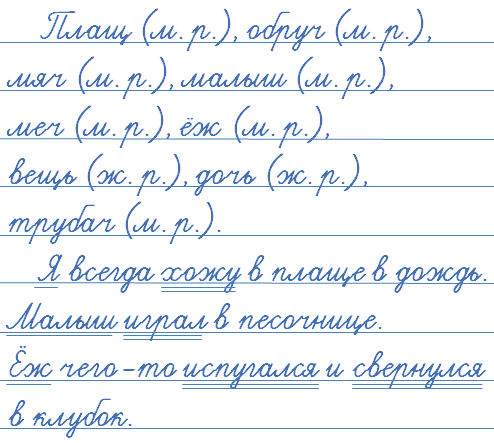 Плащ (м. р.), обруч (м. р.),
мяч (м. р.), малыш (м. р.),
меч (м. р.), ёж (м. р.),
вещь (ж. р.), дочь (ж. р.),
трубач (м. р.).
Я всегда хожу в плаще в дождь.
Малыш играл в песочнице.
Ёж чего-то испугался и свернулся
в клубок.